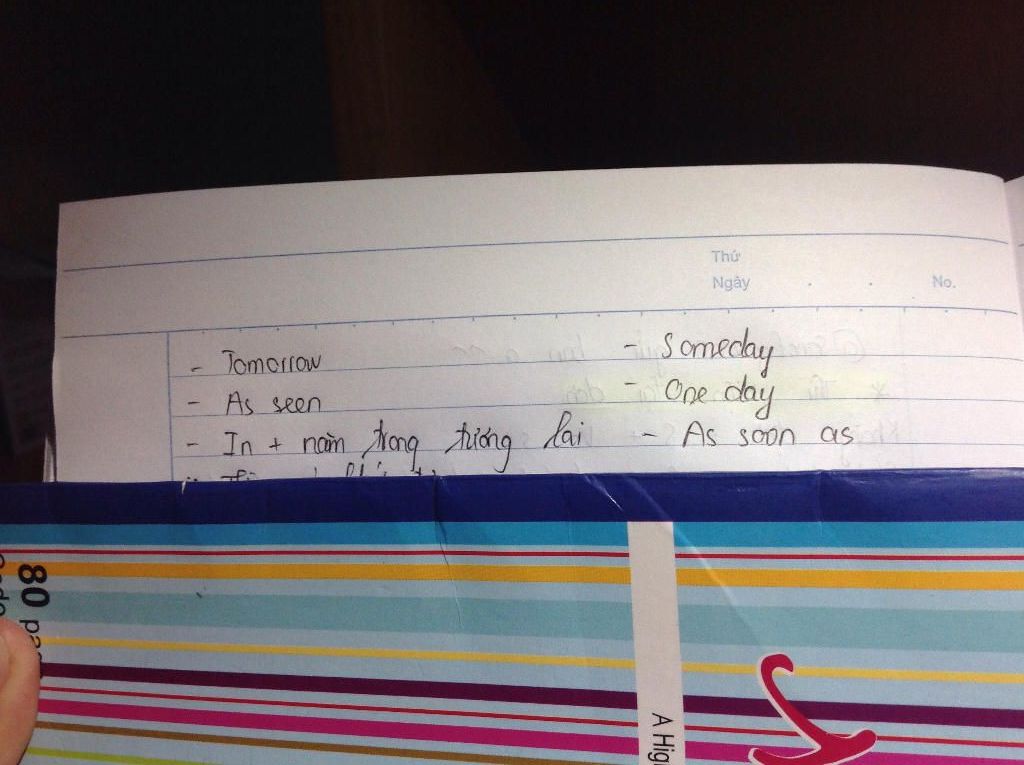 Thứ
Ngày . . No.
- Tomorrow - Someday
- As seen - One day
- In + năm trong tương lai - As soon as
80
A Hig